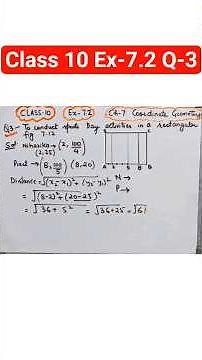 Class 10 Ex-7.2 Q-3
CLASS-10 Ex-7.2 Ch-7 Coordinate Geometry
Q3- To conduct sports Day activities in a rectangular
fig 7.12
Sol Niharika → (2, 100/4)
(2, 25)
Preet → (8, 100/5) (8, 20)
Distance = √(x₂-x₁)² + (y₂-y₁)²
N →
P →
= √(8-2)² + (20-25)²
= √36 + 5² = √36+25 = √61